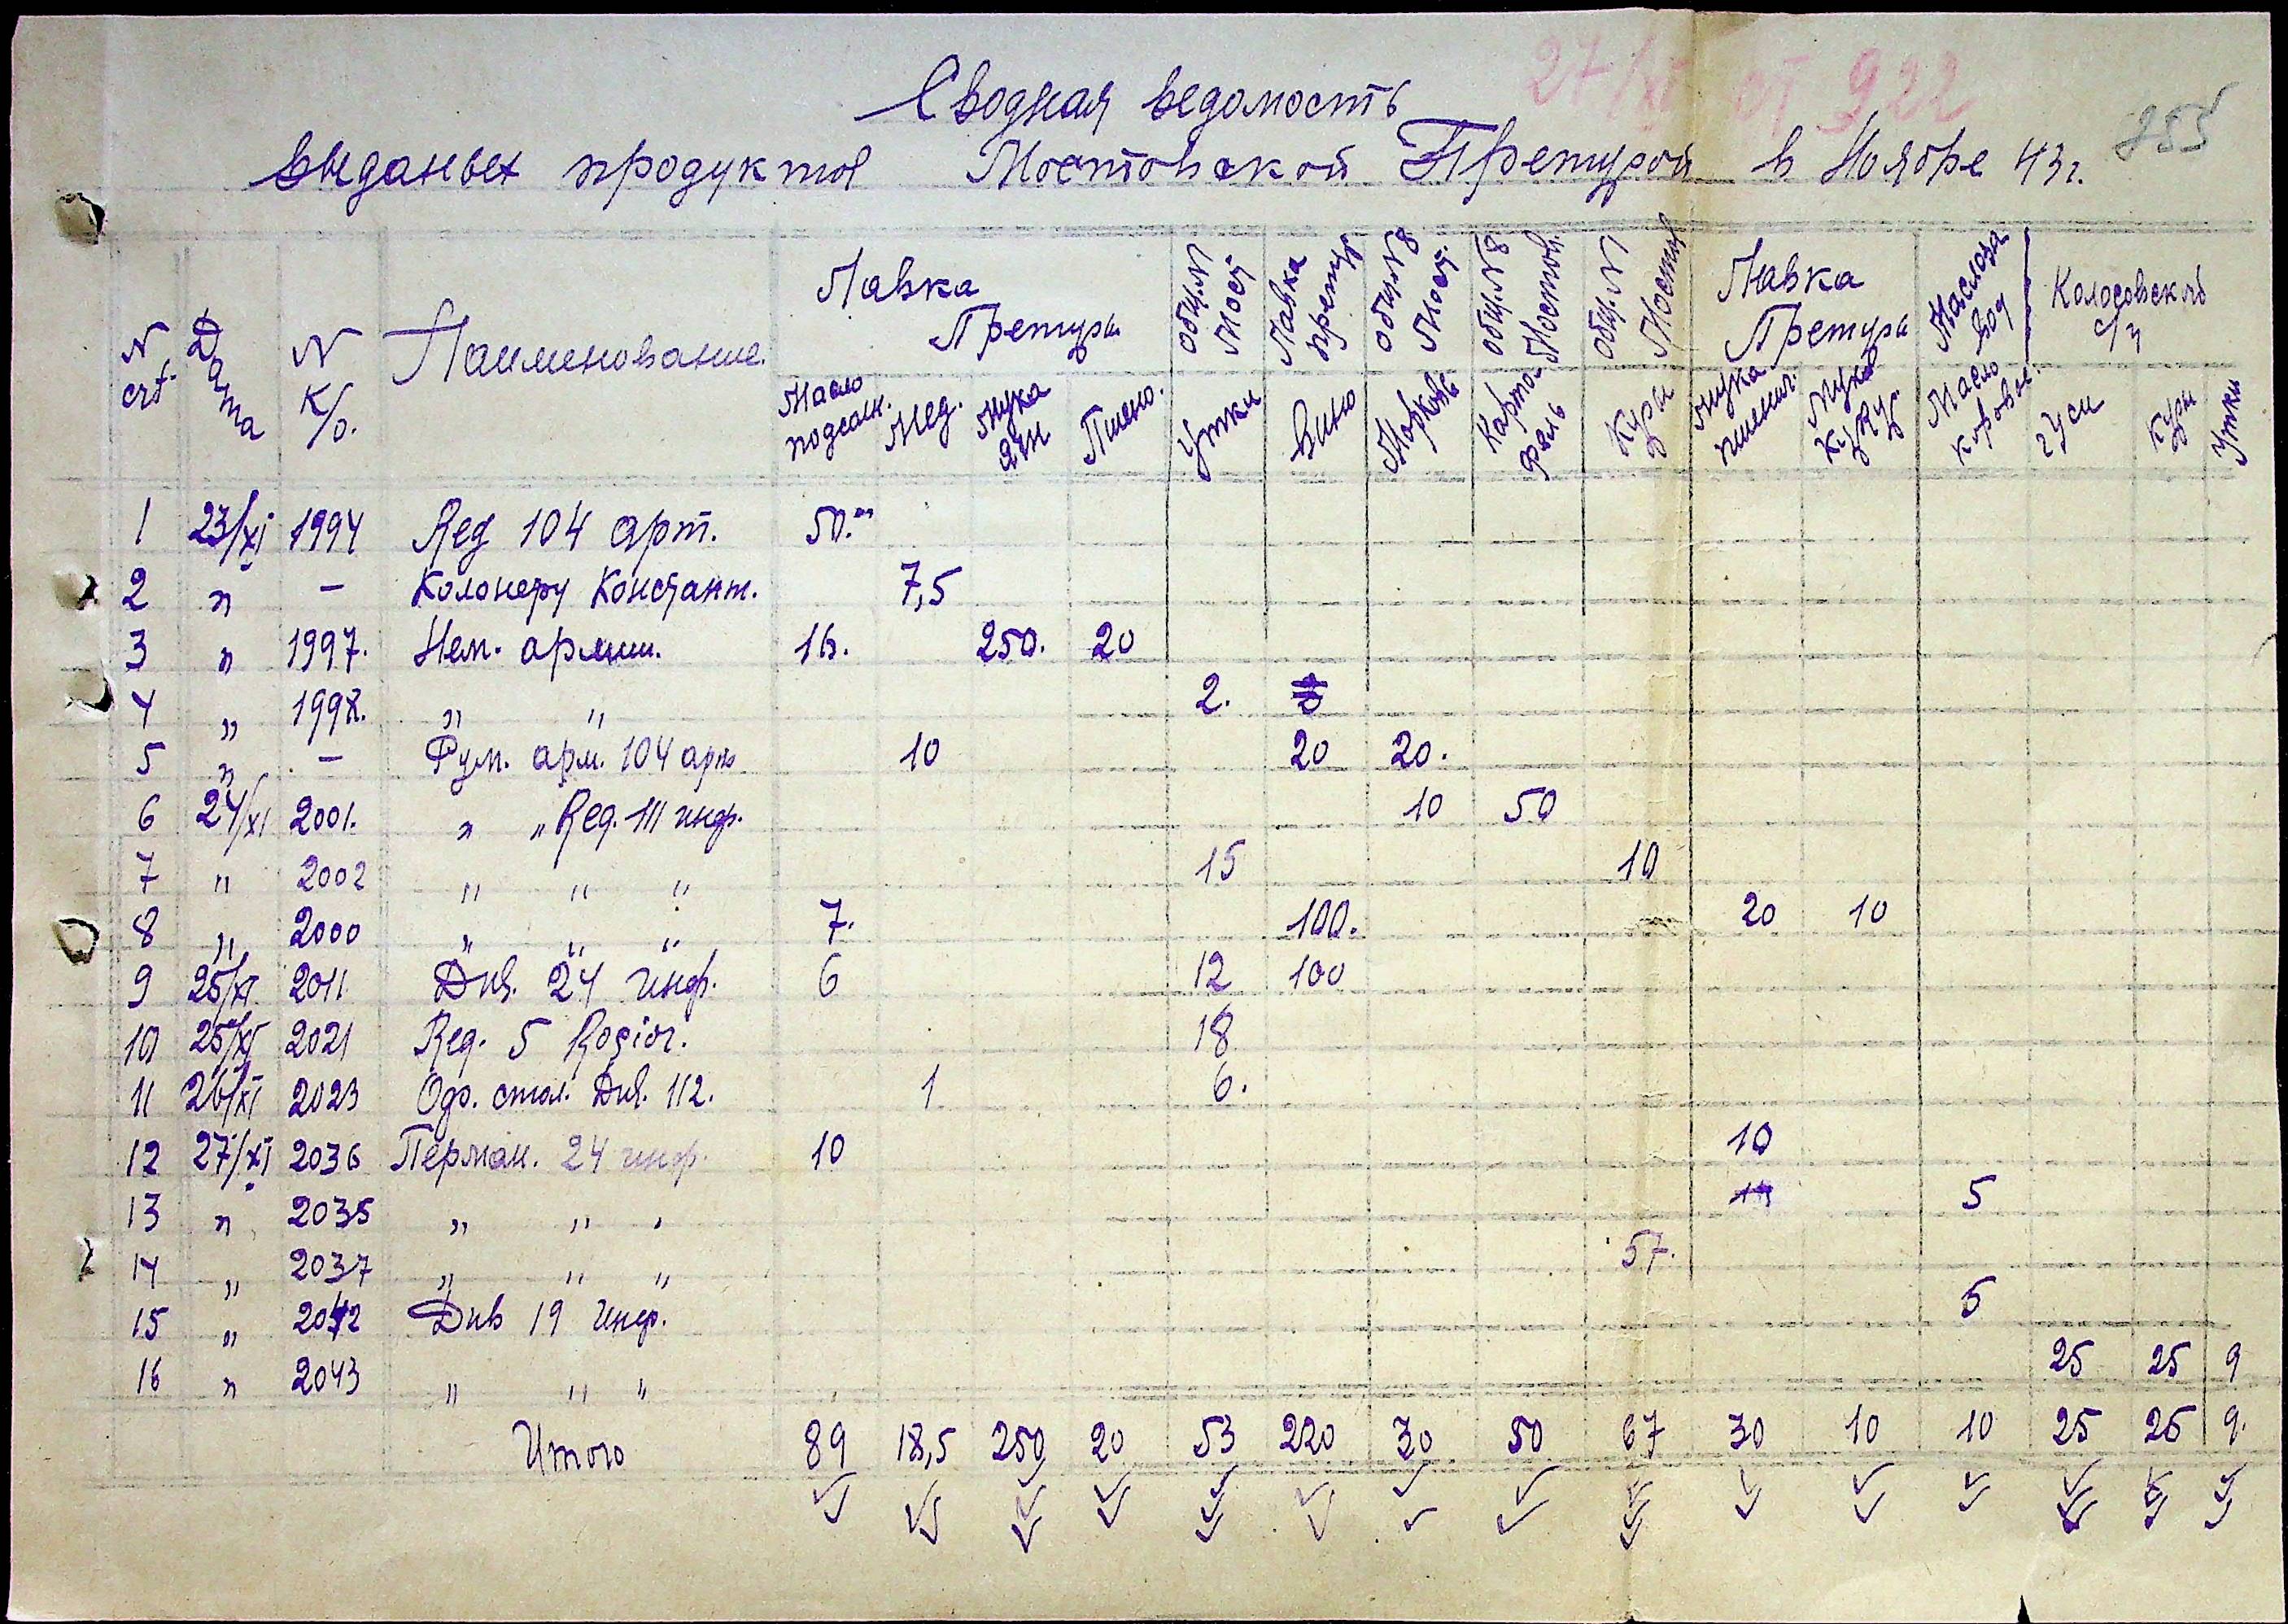 27/XI от 922
Сводная ведомость
255
выданных продуктов Мостовской Претурой в Ноябре 43 г.
N crt. Дата N К/о. Наименование. Лавка Претуры общ. N Мост Лавка претур общ. N 8 Мост. общ. N 8 Мостов. общ. N Мостов Лавка Претуры Маслозавод Колосовский с/з
Масло подсолн. Мед. Мука ячн Пшено. Утки Вино Морковь Картофель Куры Мука пшенич. Мука кукур Масло коровье. гуси куры Утки
1 23/XI 1994 Reg 104 арт. 50.-
2 " - Колонеру Констант. 7,5
3 " 1997. Нем. армии. 16. 250. 20
4 " 1998. " " 2.
5 " - Рум. арм. 104 арт 10 20 20.
6 24/XI 2001. " " Reg. 111 инф. 10 50
7 " 2002 " " " 15 10
8 " 2000 " " " 7. 100. 20 10
9 25/XI 2011. Див. 24 инф. 6 12 100
10 25/XI 2021 Reg. 5 Roșior. 18
11 26/XI 2023 Офо. стол. Див. 112. 1 6.
12 27/XI 2036 Перман. 24 инф. 10 10
13 " 2035 " " " 5
14 " 2037 " " " 57.
15 " 2042 Див 19 Инф. 5
16 " 2043 " " " 25 25 9
Итого 89 18,5 250 20 53 220 30 50 67 30 10 10 25 25 9.